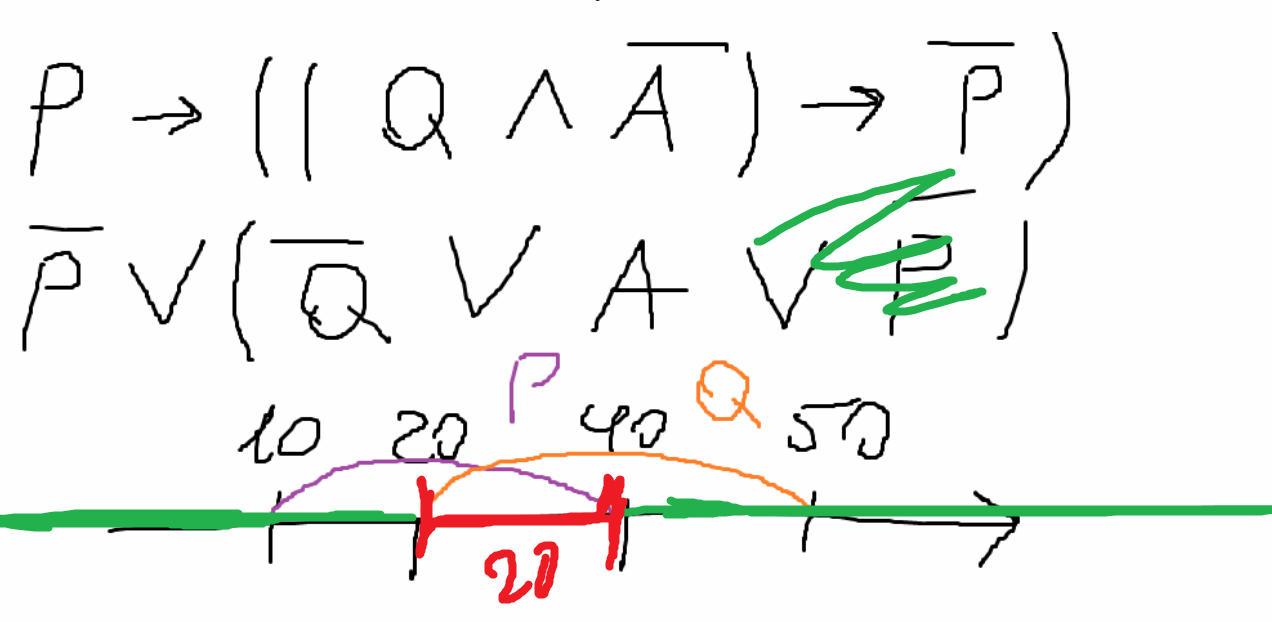 P → ((Q ∧ A̅) → P̅)
P̅ ∨ (Q̅ ∨ A ∨ P̅)
P Q
10 20 40 50
20